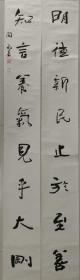 明德新民止於至善
知言養氣見乎大剛